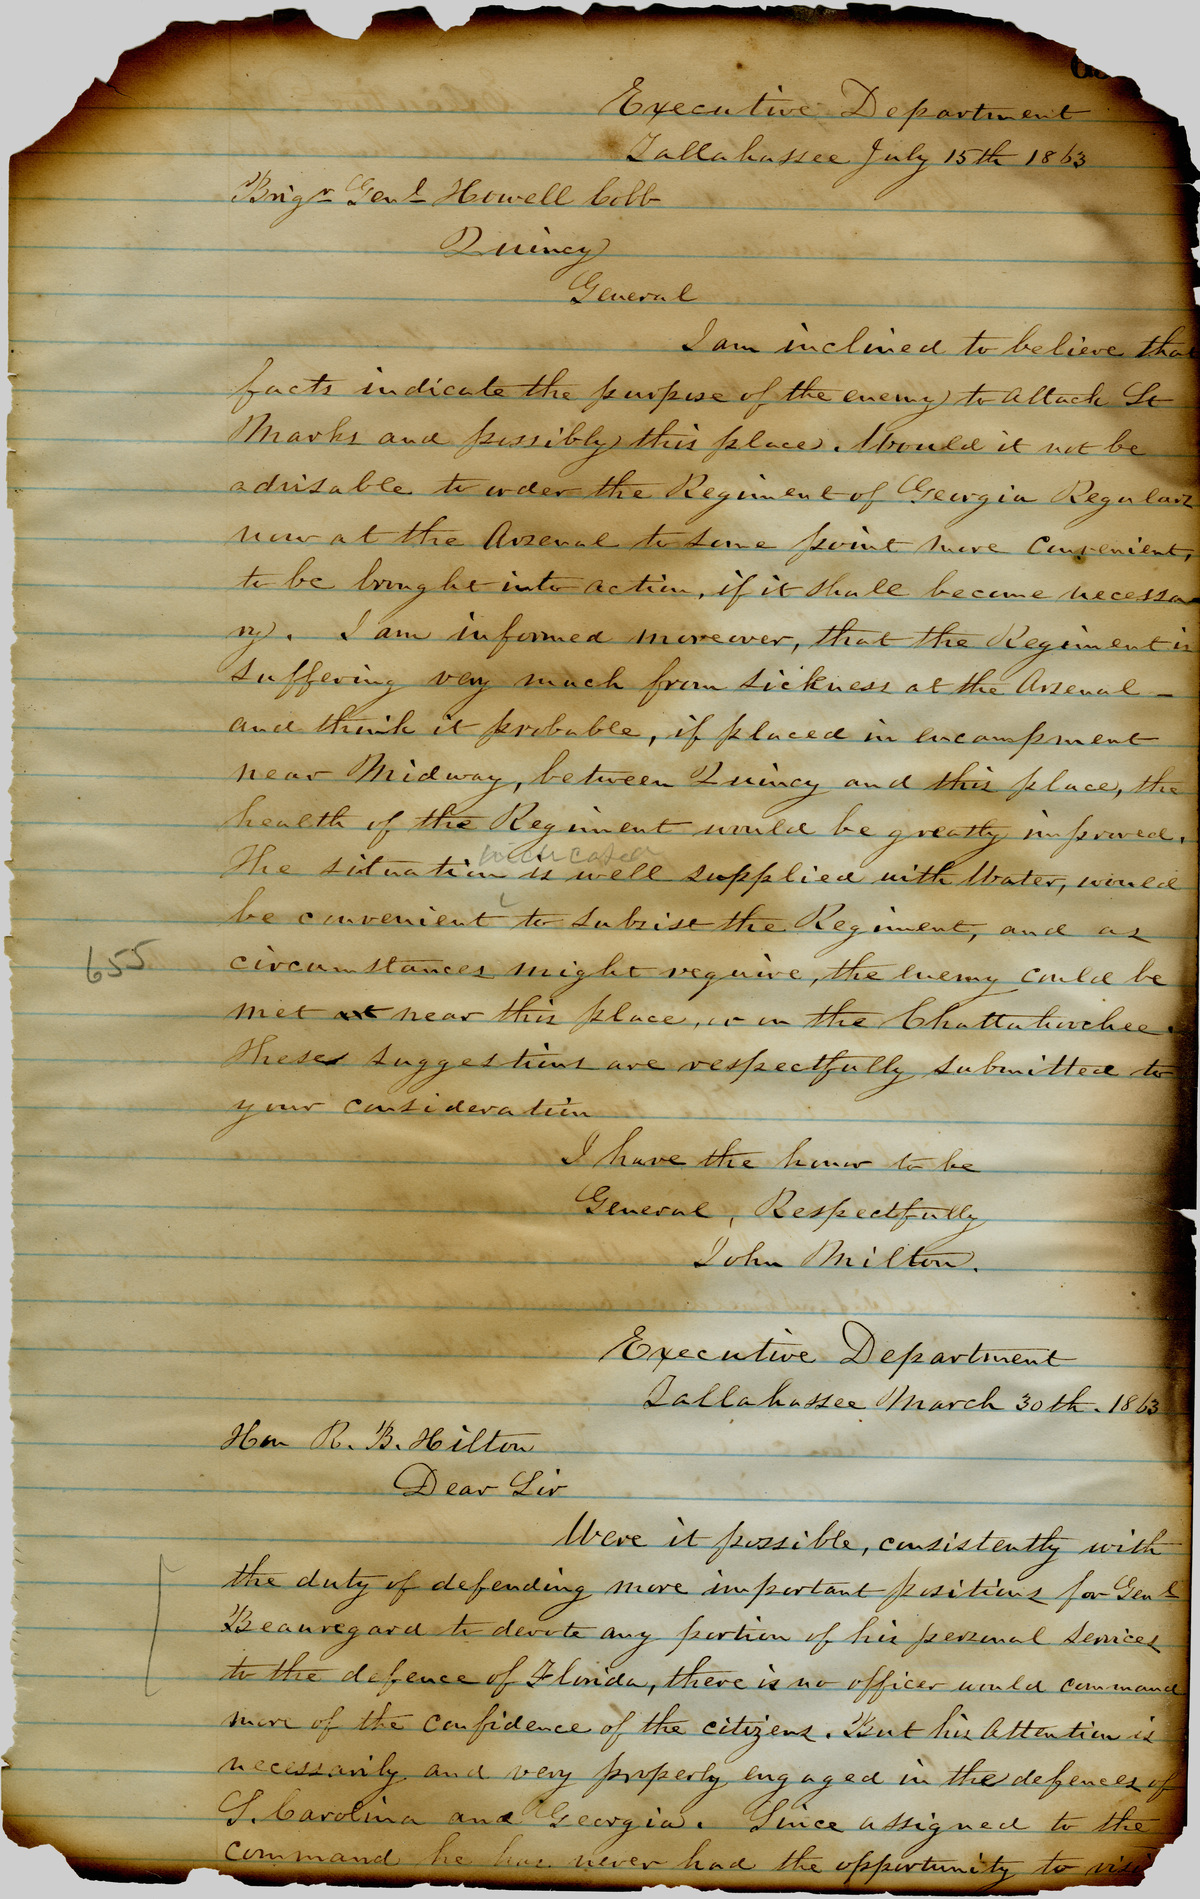 Executive Department
Tallahassee July 15th 1863
Brigr Genl Howell Cobb
Quincy
General
I am inclined to believe that
facts indicate the purpose of the enemy to attack St
Marks and possibly this place. Would it not be
advisable to order the Regiment of Georgia Regulars
now at the Arsenal to some point more convenient,
to be brought into action, if it shall become necessa
ry. I am informed moreover, that the Regiment is
suffering very much from sickness at the Arsenal –
and think it probable, if placed in encampment
near Midway, between Quincy and this place, the
health of the Regiment would be greatly improved.
The situation is well supplied with Water, would
be convenient to subsist the Regiment, and as
655
circumstances might require, the enemy could be
met at near this place, or on the Chattahoochee.
These suggestions are respectfully submitted to
your consideration
I have the honor to be
General, Respectfully
John Milton.
Executive Department
Tallahassee March 30th. 1863
Hon R. B. Hilton
Dear Sir
Were it possible, consistently with
the duty of defending more important positions for Genl
Beauregard to devote any portion of his personal services
to the defence of Florida, there is no officer would command
more of the confidence of the citizens. But his Attention is
necessarily and very properly engaged in the defences of
S. Carolina and Georgia. Since assigned to the
command he has never had the opportunity to visit